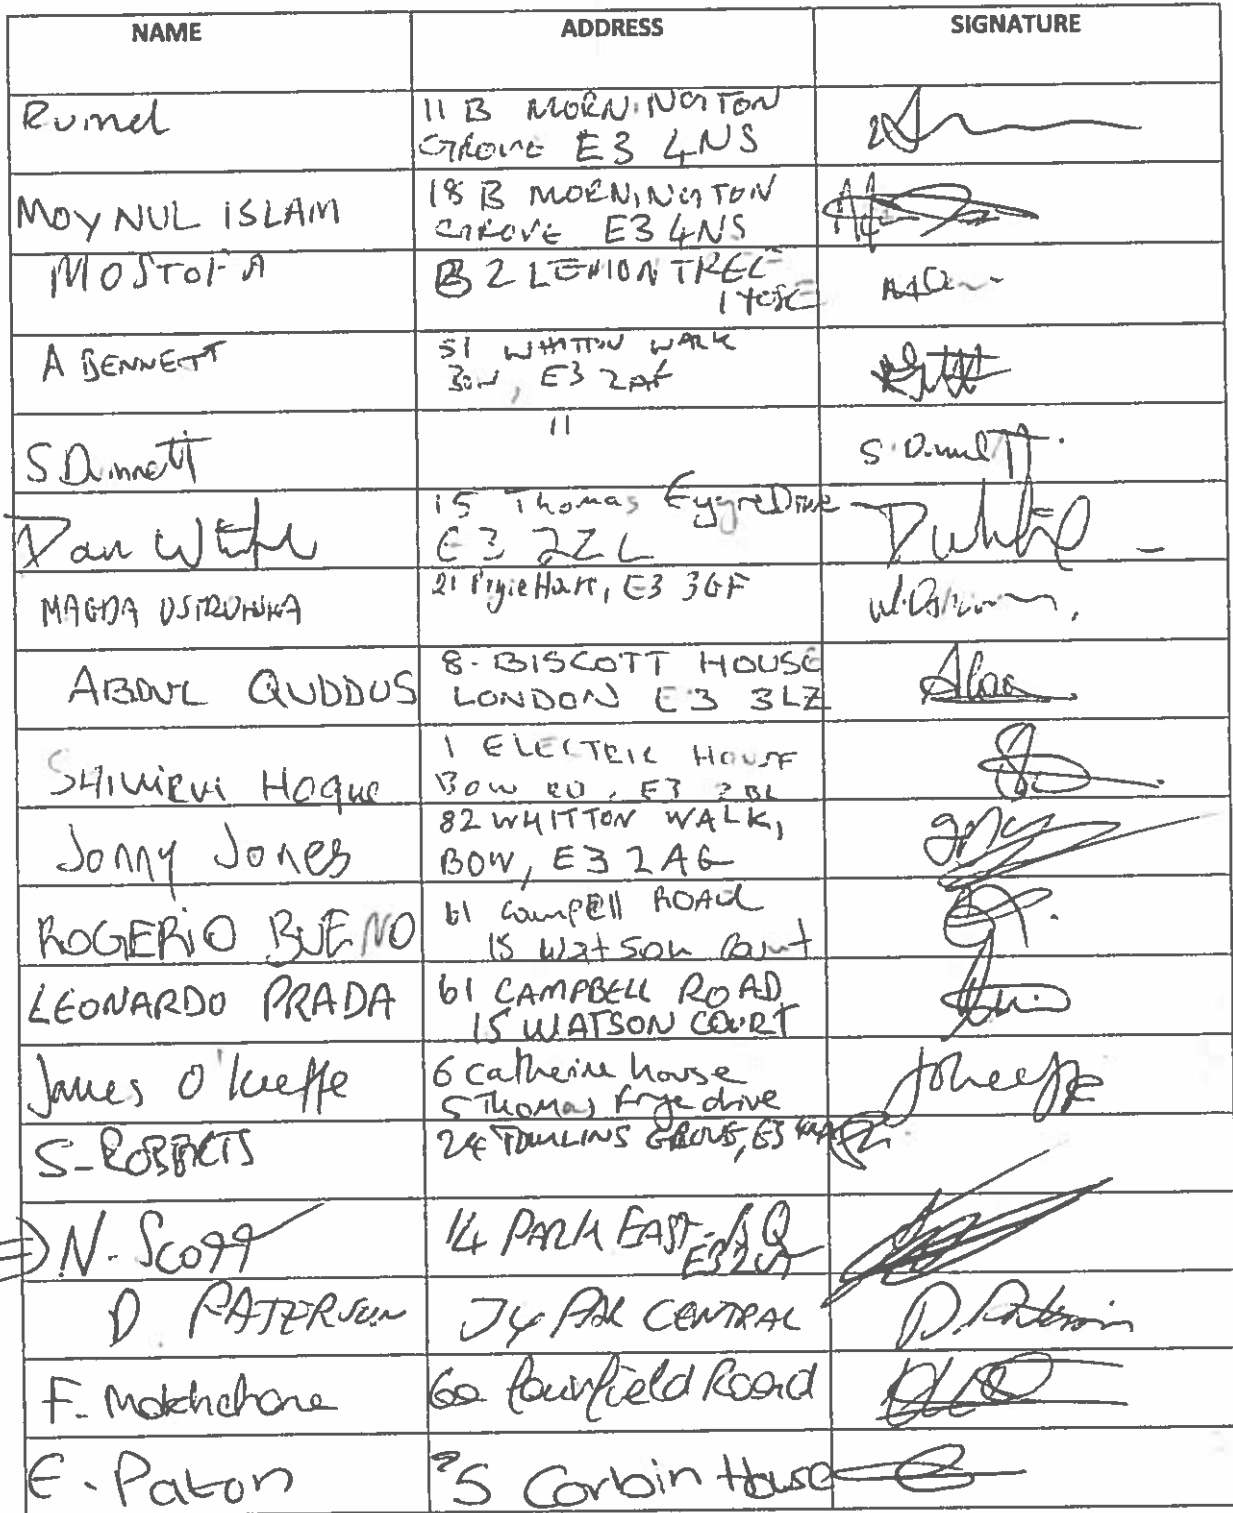 NAME ADDRESS SIGNATURE
Rumel 11 B MORNINGTON
GROVE E3 4NS
MOYNUL ISLAM 18 B MORNINGTON
GROVE E3 4NS
MOSTOFA 2 LEMON TREE
A BENNETT 51 WHITTON WALK
BOW, E3 2AF
S Dunnett "
S. Dunnett.
Dan 15 Thomas Drive
E3 2ZL
MAGDA 21 E3 3GF
ABDUL QUDDUS 8- BISCOTT HOUSE
LONDON E3 3LZ
Hoque 1 ELECTRIC HOUSE
BOW RD, E3 2BL
Jonny Jones 82 WHITTON WALK,
BOW, E3 2AG
ROGERIO BUENO 61 Campell ROAD
15 Watson Court
LEONARDO PRADA 61 CAMPBELL ROAD
15 WATSON COURT
James O'Keeffe 6 Catherine house
5 Thomas Frye drive
JOKeeffe
S-ROBERTS 24 TOMLINS GROVE, E3
N. Scott 14 PARK EAST
D PATERSON 74 CENTRAL
D. Paterson
F. 60 Fairfield Road
E. Paton Corbin House